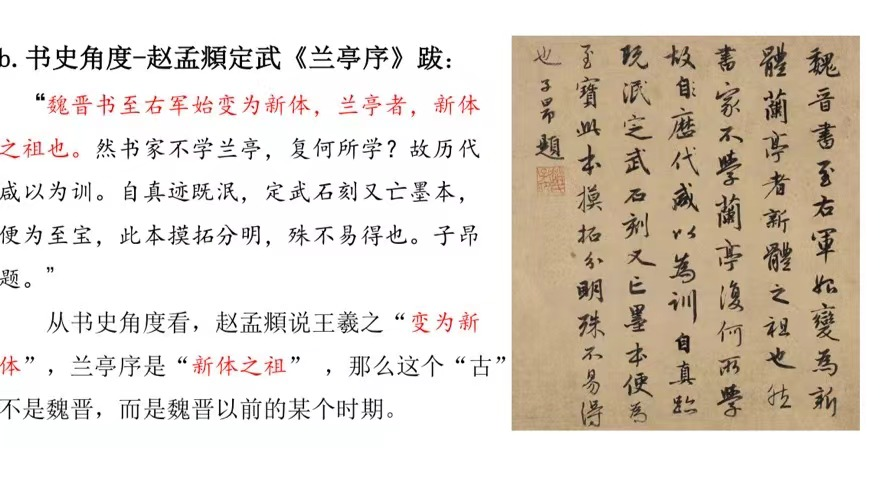 b.书史角度-赵孟頫定武《兰亭序》跋：
“魏晋书至右军始变为新体，兰亭者，新体
之祖也。然书家不学兰亭，复何所学？故历代
咸以为训。自真迹既泯，定武石刻又亡墨本，
便为至宝，此本摸拓分明，殊不易得也。子昂
题。”
从书史角度看，赵孟頫说王羲之“变为新
体”，兰亭序是“新体之祖” ，那么这个“古”
不是魏晋，而是魏晋以前的某个时期。
魏晉書至右軍始變為新
體蘭亭者新體之祖也然
書家不學蘭亭復何所學
故自歷代咸以為訓自真跡
既泯定武石刻又亡墨本便為
至寶此本摸拓分明殊不易得
也子昂題